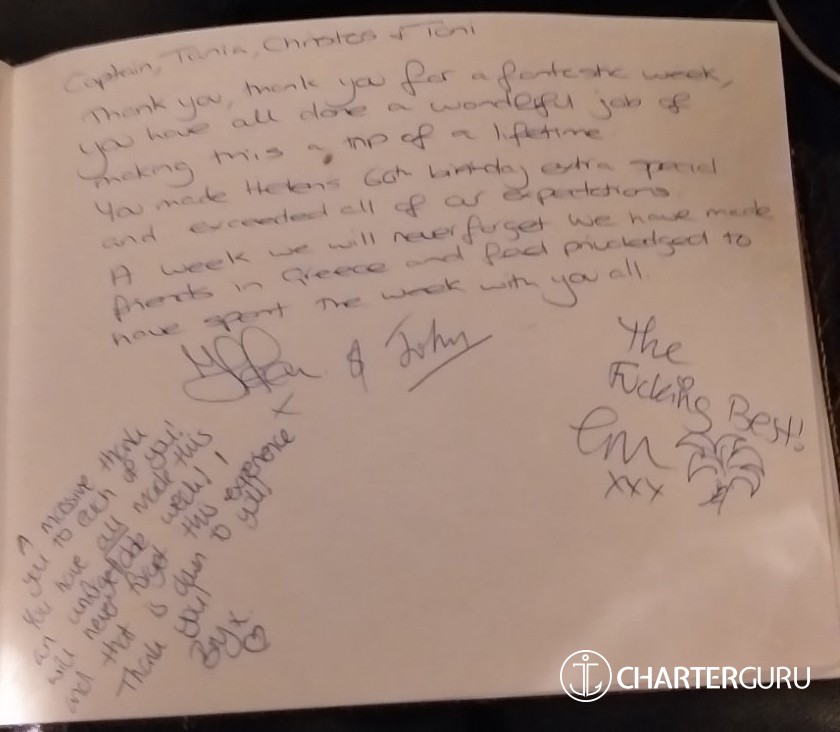 Captain, Tania, Christos & Toni
Thank you, thank you for a fantastic week,
you have all done a wonderful job of
making this a trip of a lifetime
You made Helens 60th birthday extra special
and exceeded all of our expectations.
A week we will never forget we have made
friends in Greece and feel priviledged to
have spent the week with you all.
& John
x
The
Fucking Best!
Em
xxx
A massive thank
you to each of you!
You have all made this
an unforgettable week! I
will never forget this experience
and that is down to you!!
Thank you!
Bry x
CHARTERGURU